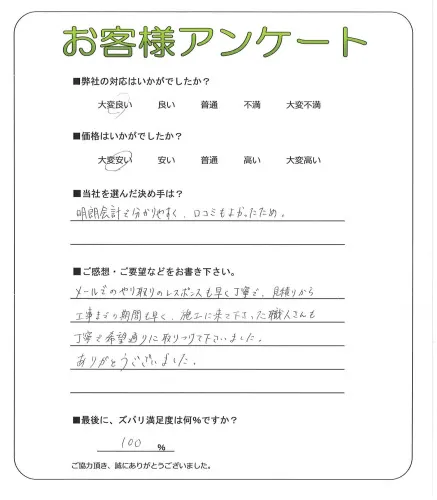 お客様アンケート
■弊社の対応はいかがでしたか？
大変良い 良い 普通 不満 大変不満
■価格はいかがでしたか？
大変安い 安い 普通 高い 大変高い
■当社を選んだ決め手は？
明朗会計で分かりやすく、口コミもよかったため。
■ご感想・ご要望などをお書き下さい。
メールでのやり取りのレスポンスも早く丁寧で、見積りから
工事までの期間も早く、施工に来て下さった職人さんも
丁寧で希望通りに取りつけて下さいました。
ありがとうございました。
■最後に、ズバリ満足度は何％ですか？
100 %
ご協力頂き、誠にありがとうございました。